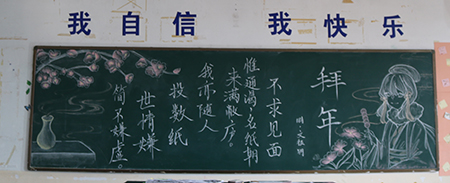 我自信 我快乐
拜年
明·文征明
不求见面
惟通谒,名纸朝
来满敝庐。
我亦随人
投数纸
世情嫌
简不嫌虚。